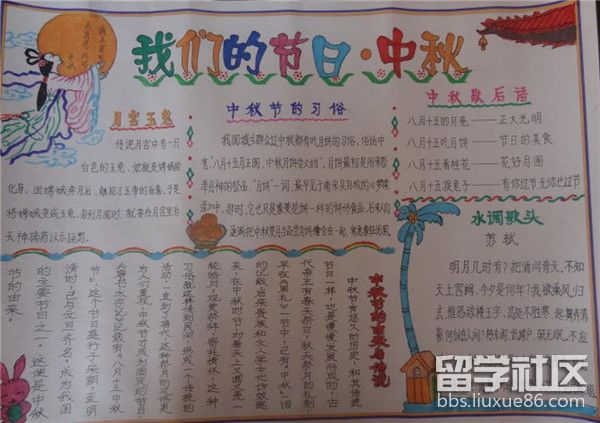 我们的节日·中秋
月宫玉兔
传说月宫中有一只
白色的玉兔，她就是嫦娥的
化身。因嫦娥奔月后，触犯了玉帝的旨意，于是
将嫦娥变成玉兔，每到月圆时，就要在月宫里为
天神捣药以示惩罚。
中秋节的习俗
我国城乡群众过中秋都有吃月饼的习俗，俗话中
有：“八月十五月正圆，中秋月饼香又甜”。月饼最初是用来祭
奉月神的祭品，“月饼”一词，最早见于南宋吴自牧的《梦粱
录》中，那时，它也只是像菱花饼一样的饼形食品，后来人们
逐渐把中秋赏月与品尝月饼结合在一起，寓意家人团圆。
中秋歇后语
八月十五的月亮——正大光明
八月十五吃月饼——节日的美食
八月十五看桂花——花好月圆
八月十五捉兔子——有你过节无你也过节
水调歌头
苏轼
明月几时有？把酒问青天，不知
天上宫阙，今夕是何年？我欲乘风归
去，惟恐琼楼玉宇，高处不胜寒，起舞弄清
影，何似在人间？转朱阁，低绮户，照无眠，不应
中秋节的由来与传说
中秋节有悠久的历史，和其他传统
节日一样，也是慢慢发展形成的，古
代帝王有春天祭日，秋天祭月的礼制，
早在《周礼》一书中，已有“中秋”一词
的记载。后来贵族和文人学士也仿效起
来，在中秋时节，对着天上又圆又亮一
轮皓月，观赏祭拜，寄托情怀，这种
习俗就这样传到民间，形成一个传统的
活动，一直到了唐代，这种祭月的风俗更
为人们重视，中秋节才成为固定的节日，
《唐书》
八月十五中秋
节”，这个节日盛行于宋朝，至明
清时，已与元旦齐名，成为我国
的主要节日之一。这便是中秋
节的由来。
留学社区
bbs.liuxue86.com